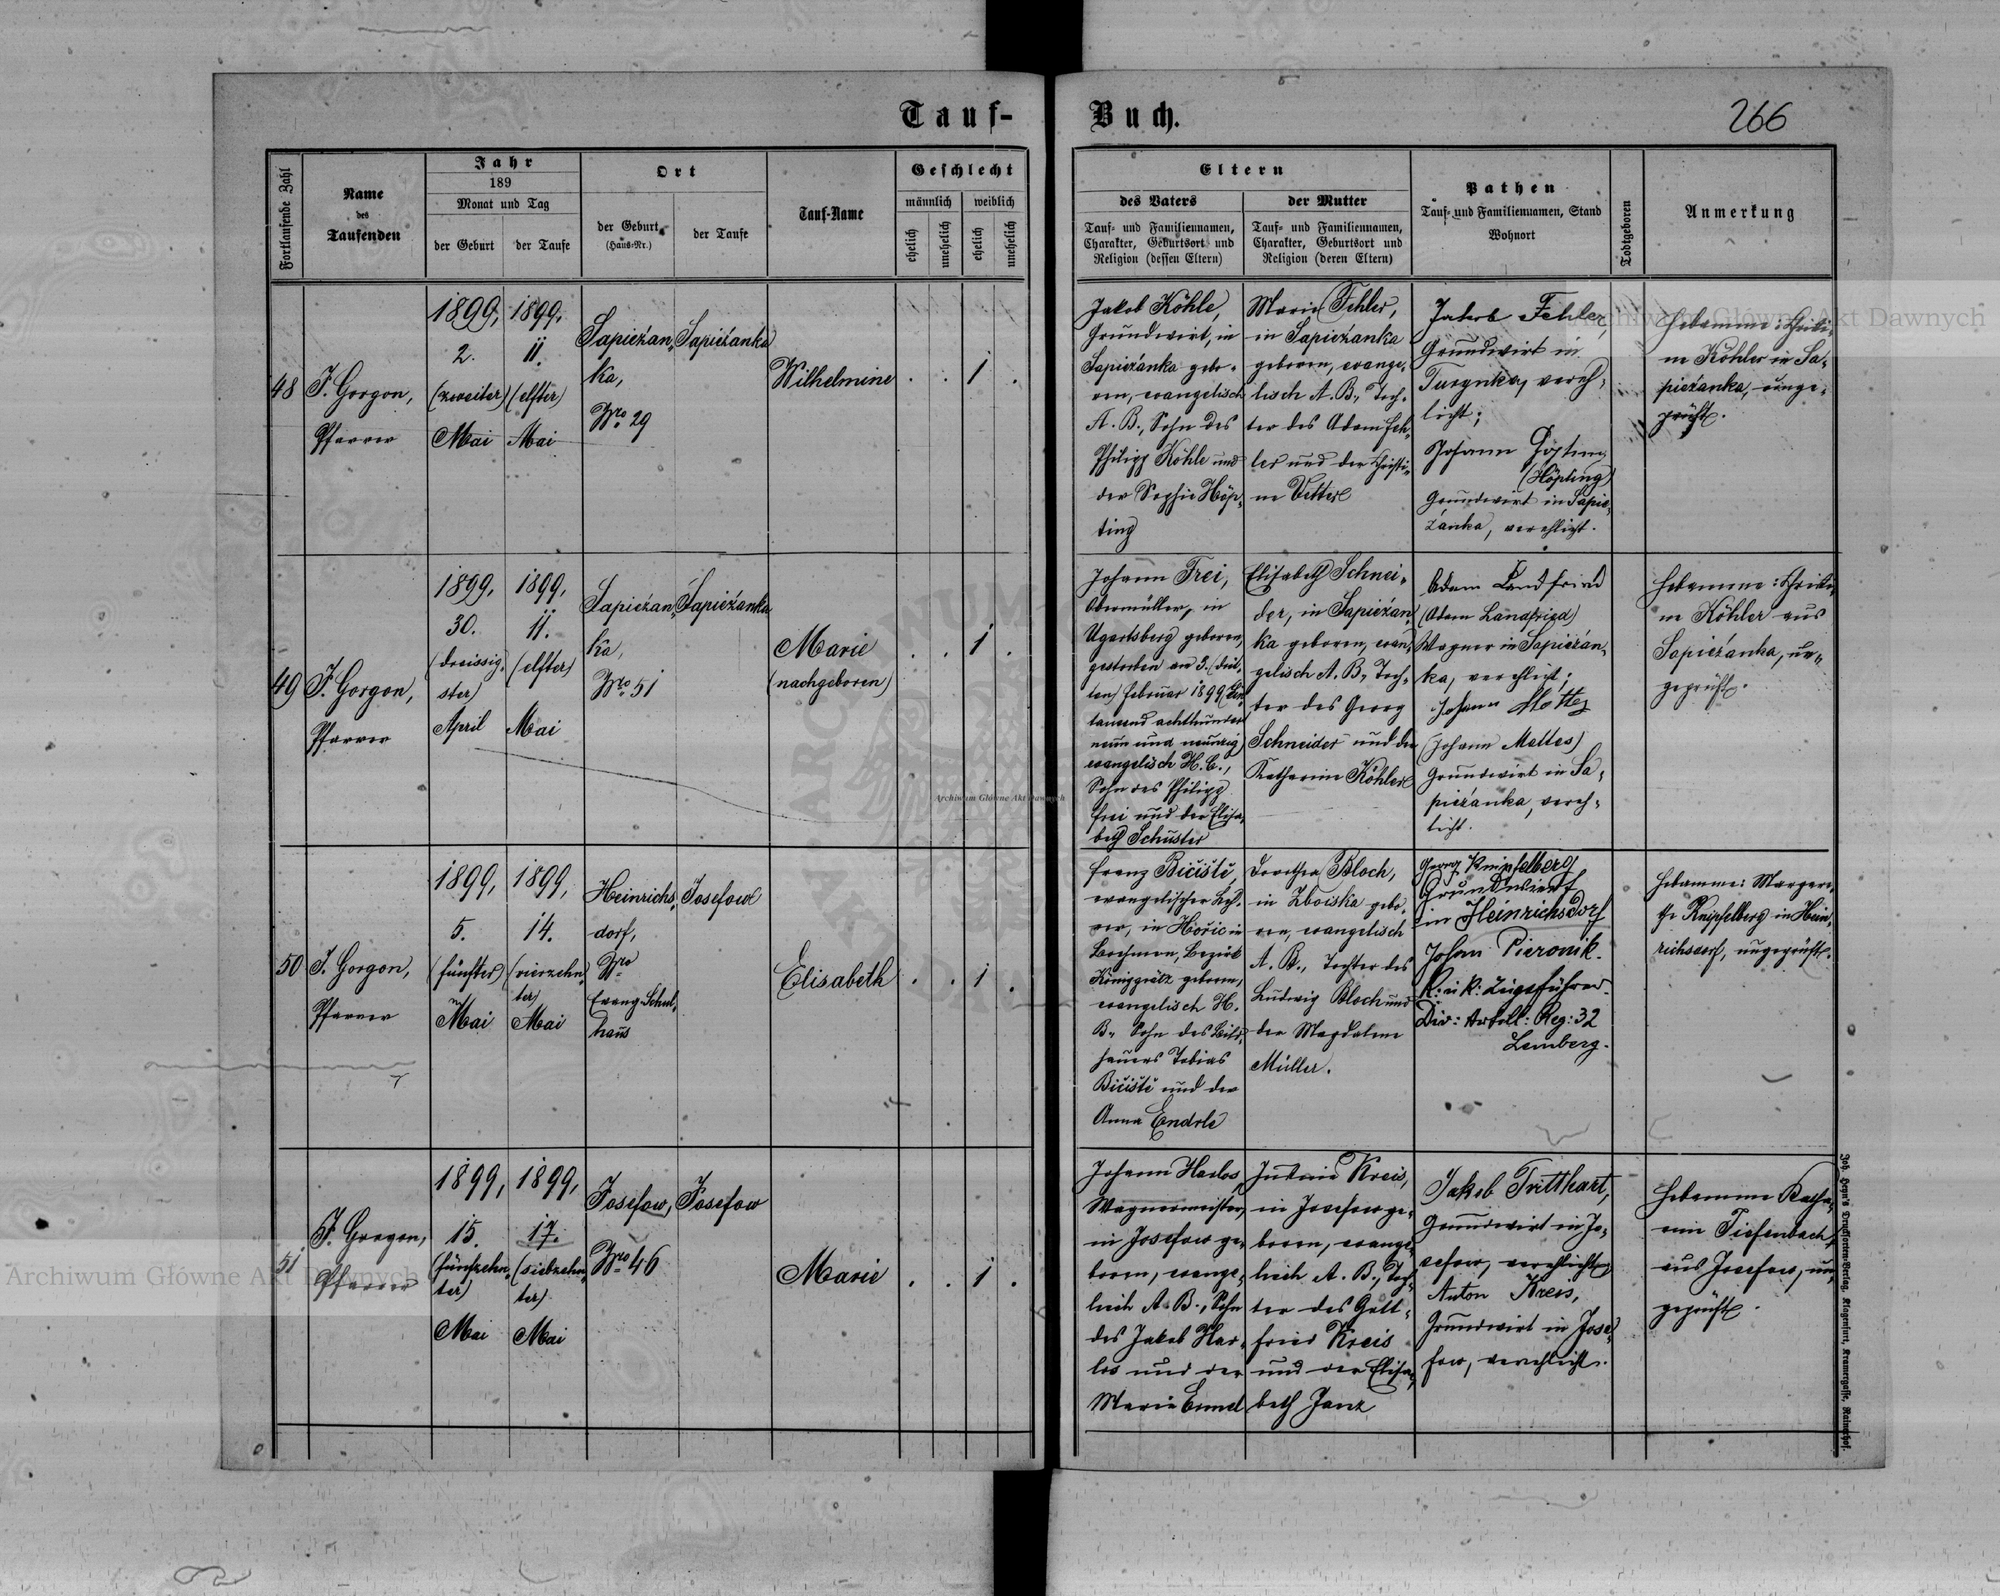 Tauf-
Buch.
266
Fortlaufende Zahl
Name
des
Taufenden
Jahr
189
Monat und Tag
der Geburt
der Taufe
Ort
der Geburt
(Haus-Nr.)
der Taufe
Tauf-Name
Geschlecht
männlich
weiblich
ehelich
unehelich
ehelich
unehelich
Eltern
des Vaters
Tauf- und Familiennamen,
Charakter, Geburtsort und
Religion (dessen Eltern)
der Mutter
Tauf- und Familiennamen,
Charakter, Geburtsort und
Religion (deren Eltern)
Pathen
Tauf- und Familiennamen, Stand
Wohnort
Todtgeboren
Anmerkung
48
J. Gorgon,
Pfarrer
1899,
2.
(zweiter)
Mai
1899,
11.
(elfter)
Mai
Sapieżan-
ka,
Nro 29
Sapieżanka
Wilhelmine
. . 1 .
Jakob Köhle,
Grundwirt, in
Sapieżanka gebo-
ren, evangelisch
A. B., Sohn des
Philipp Köhle und
der Sophie Höp-
ting
Marie Fehler,
in Sapieżanka
geboren, evange-
lisch A. B., Toch-
ter des Adam Feh-
ler und der Christi-
ne Vetter
Jakob Fehler,
Grundwirt in
Turynka, vereh-
licht;
Johann
(Höpting)
Grundwirt in Sapie-
żanka, verehlicht.
Hebamme: Christi-
ne Köhler in Sa-
pieżanka, unge-
prüft.
49
J. Gorgon,
Pfarrer
1899,
30.
(dreissig-
ster)
April
1899,
11.
(elfter)
Mai
Sapieżan-
ka,
Nro 51
Sapieżanka
Marie
(nachgeboren)
. . 1 .
Johann Frei,
Obermüller, in
Ugartsberg geboren,
gestorben am 3. (drit-
ten) Februar 1899 (Ein-
tausend achthundert
neun und neunzig)
evangelisch H. B.,
Sohn des Philipp
Frei und der Elisa-
beth Schuster
Elisabeth Schnei-
der, in Sapieżan-
ka geboren, evan-
gelisch A. B., Toch-
ter des Georg
Schneider und der
Katharine Köhler
Adam Landfried
(Adam Landfried)
Wagner in Sapieżan-
ka, verehlicht;
Johann Mottes
(Johann Mattes)
Grundwirt in Sa-
pieżanka, vereh-
licht.
Hebamme: Christi-
ne Köhler aus
Sapieżanka, un-
geprüft.
50
J. Gorgon,
Pfarrer
1899,
5.
(fünfter)
Mai
1899,
14.
(vierzehn-
ter)
Mai
Heinrichs-
dorf,
Nro
Evang. Schul-
haus
Josefow
Elisabeth
. . 1 .
Franz Bičiště,
evangelischer Leh-
rer, in Hořic in
Boehmen, Bezirk
Königgrätz geboren,
evangelisch H.
B., Sohn des Bild-
hauers Tobias
Bičiště und der
Anna Endrle
Dorothea Bloch,
in Zboiska gebo-
ren, evangelisch
A. B., Tochter des
Ludwig Bloch und
der Magdalene
Müller.
Georg Knipfelberg
Grundwirt
in Heinrichsdorf
Johan Pieronik.
K: u K: Zugsführer
Div: Artill: Reg: 32
Lemberg.
Hebamme: Margare-
the Knipfelberg in Hein-
richsdorf, ungeprüft.
51
J. Gorgon,
Pfarrer
1899,
15.
(fünfzehn-
ter)
Mai
1899,
17.
(siebzehn-
ter)
Mai
Josefow,
Nro 46
Josefow
Marie
. . 1 .
Johann Harlos,
Wagnermeister,
in Josefow ge-
boren, evange-
lisch A. B., Sohn
des Jakob Har-
los und der
Marie Emmel
Kreis,
in Josefow ge-
boren, evange-
lisch A. B., Toch-
ter des Gott-
fried Kreis
und der Elisa-
beth Janz
Jakob Tritthart,
Grundwirt in Jo-
sefow, verehlicht
Anton Kreis,
Grundwirt in Jose-
fow, verehlicht.
Hebamme Katha-
rine Tiefenbach
aus Josefow, un-
geprüft.
Joh. Heyn's Drucksorten-Verlag, Klagenfurt, Kramergasse, Rainerhof.
Archiwum Główne Akt Dawnych
Archiwum Główne Akt Dawnych
Archiwum Główne Akt Dawnych